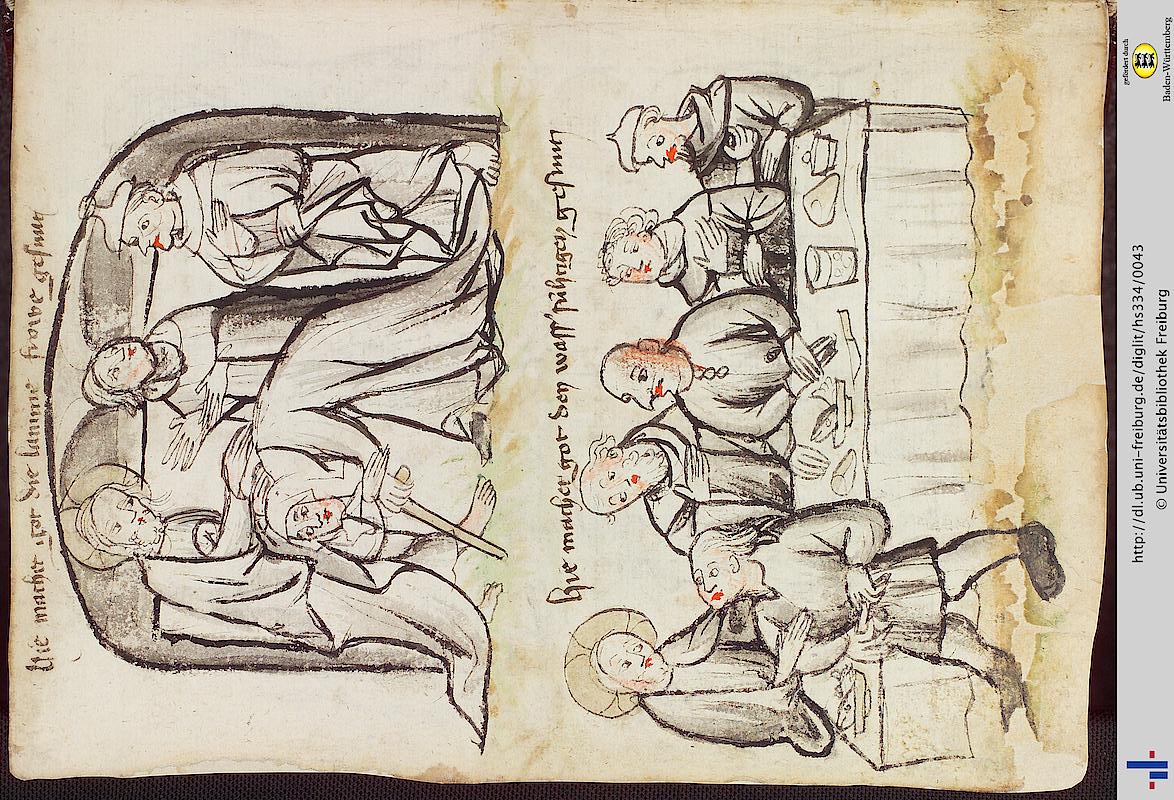 Hie machet got die lamme frowe gesunt
Hie machet got den wasssúhtigen gesunt
http://dl.ub.uni-freiburg.de/diglit/hs334/0043
© Universitätsbibliothek Freiburg
gefördert durch
Baden-Württemberg